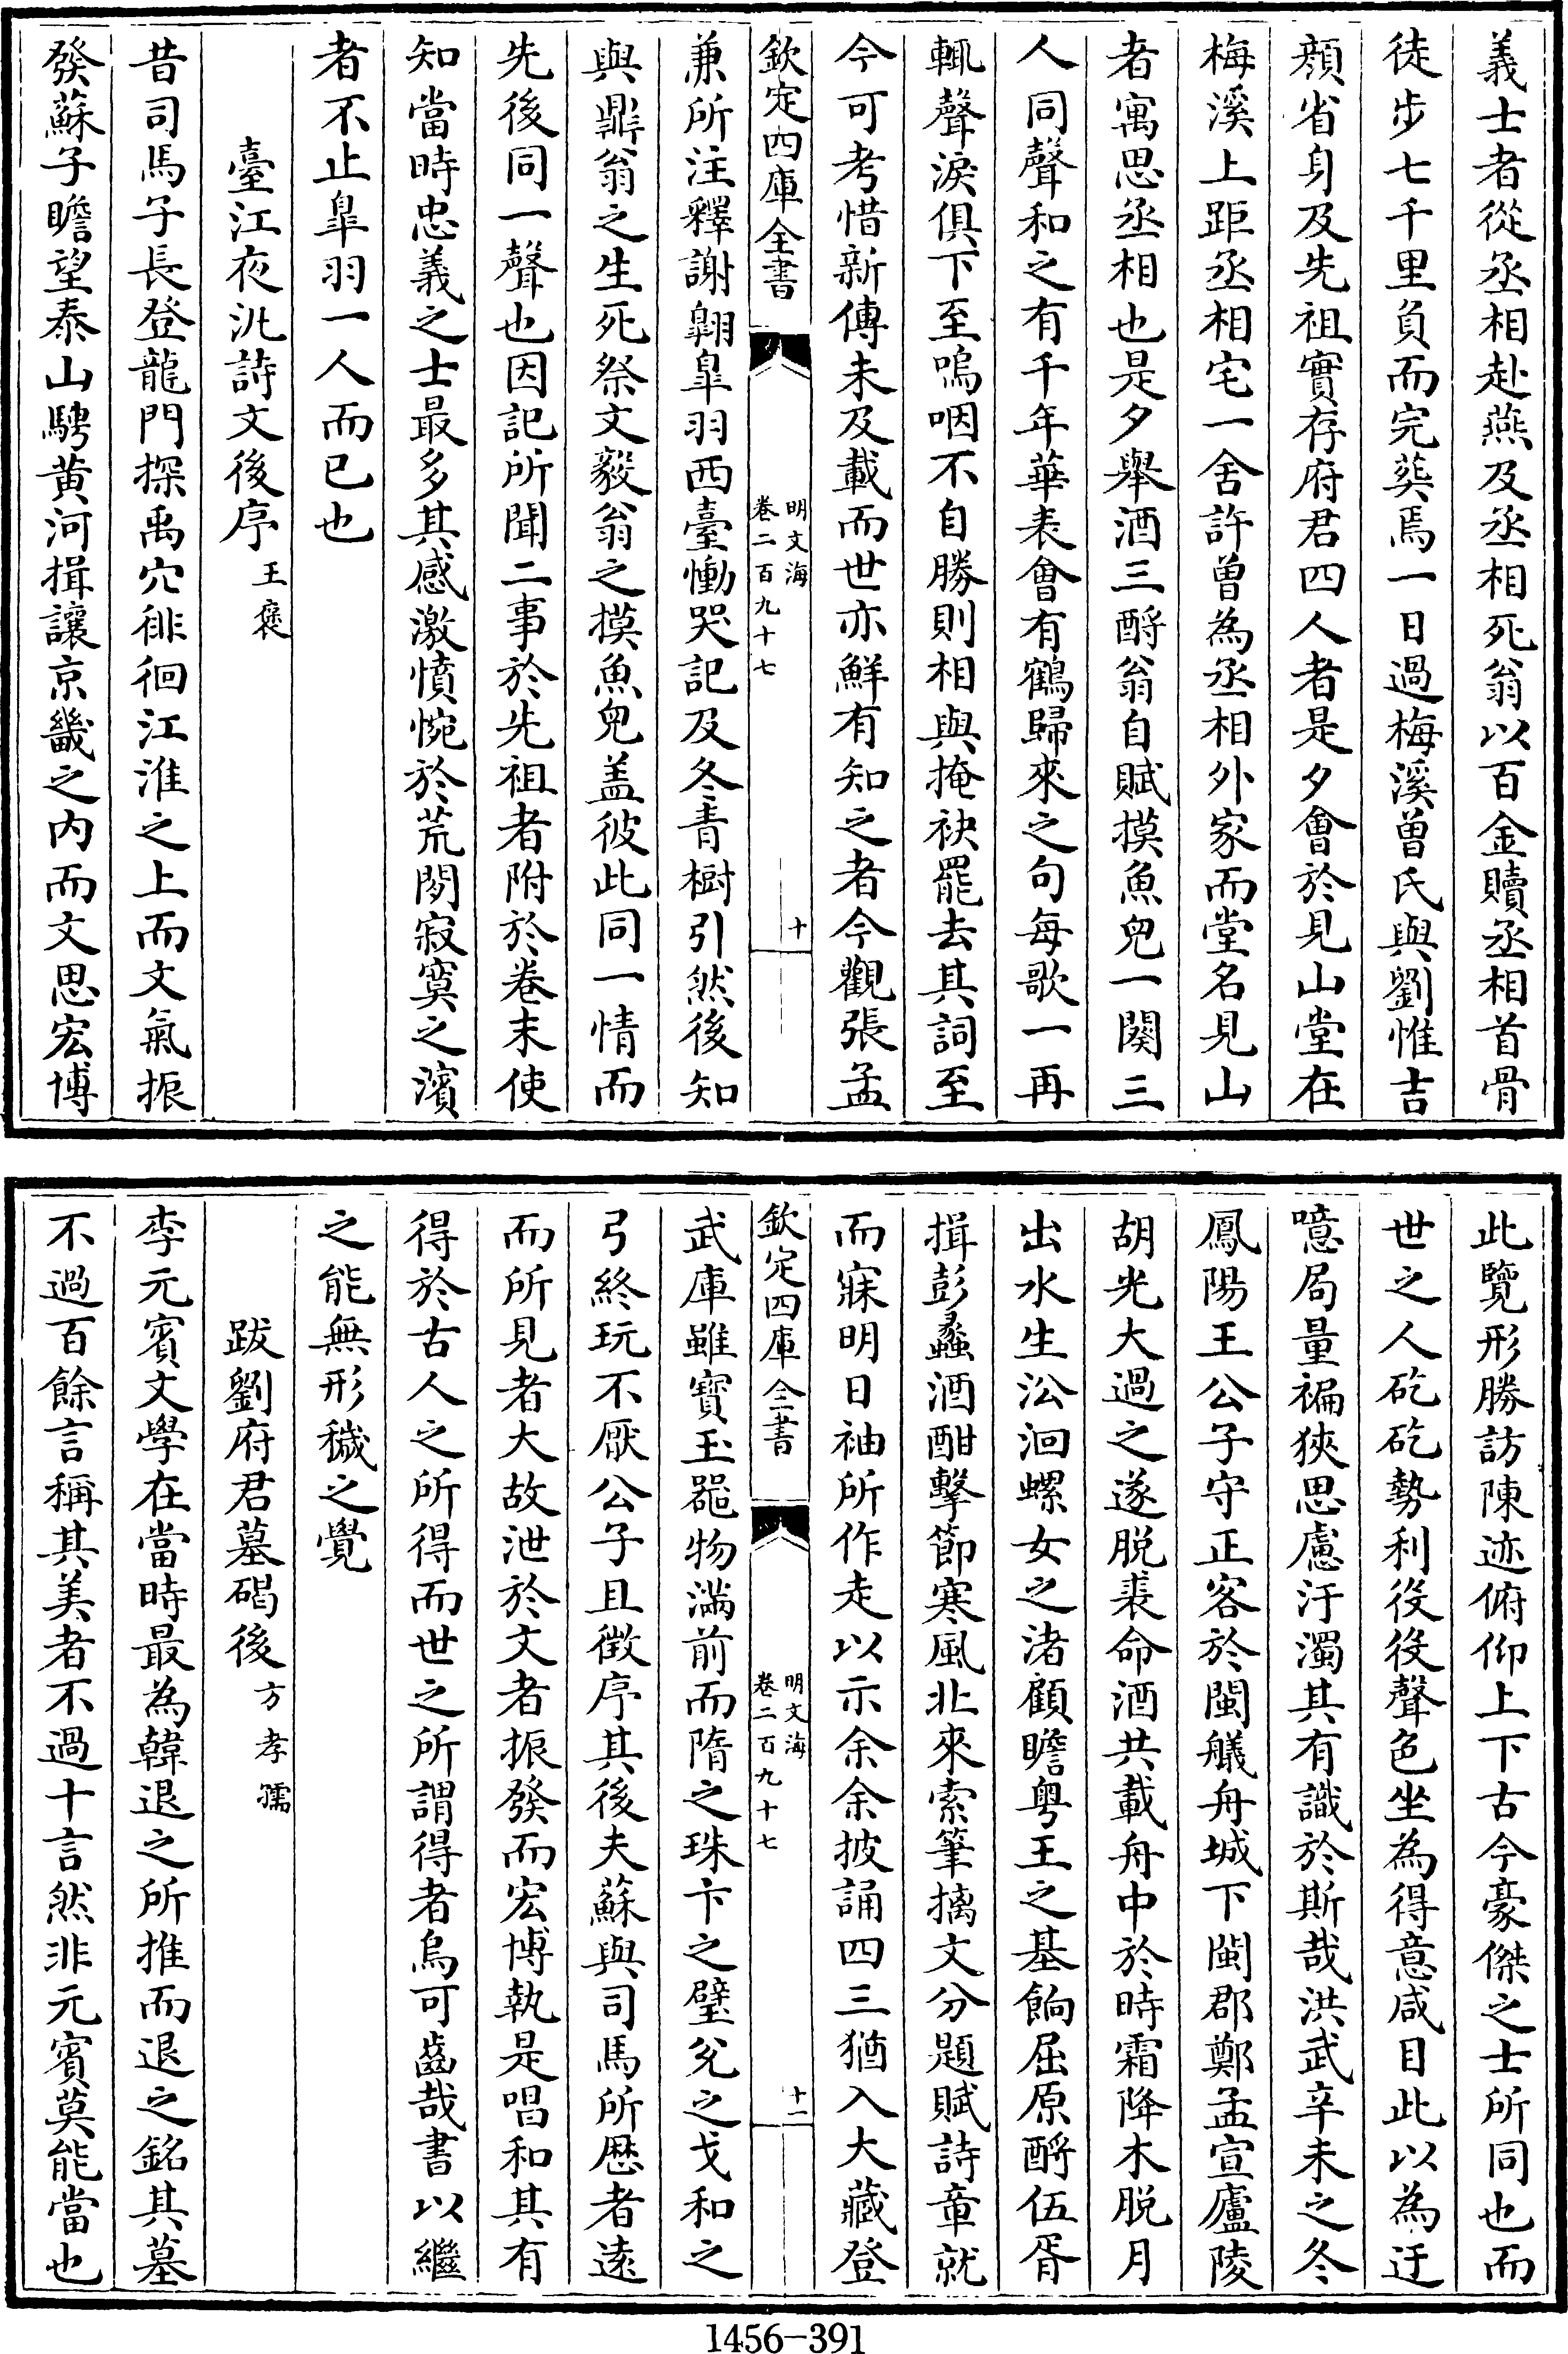 義士者從丞相赴燕及丞相死翁以百金贖丞相首骨
徒步七千里負而完葬焉一日過梅溪曾氏與劉惟吉
顏省身及先祖實存府君四人者是夕會於見山堂在
梅溪上距丞相宅一舍許曾為丞相外家而堂名見山
者寓思丞相也是夕舉酒三酹翁自賦摸魚兒一闋三
人同聲和之有千年華表會有鶴歸來之句每歌一再
輒聲淚俱下至嗚咽不自勝則相與掩袂罷去其詞至
今可考惜新傳未及載而世亦鮮有知之者今觀張孟
欽定四庫全書
明文海
卷二百九十七
十
兼所注釋謝翶臯羽西臺慟哭記及冬青樹引然後知
與鼎翁之生死祭文毅翁之摸魚兒盖彼此同一情而
先後同一聲也因記所聞二事於先祖者附於卷末使
知當時忠義之士最多其感激憤惋於荒閒寂寞之濱
者不止臯羽一人而已也
臺江夜泛詩文後序 王褒
昔司馬子長登龍門探禹穴徘徊江淮之上而文氣振
發蘇子瞻望泰山騁黄河揖讓京畿之内而文思宏博
此覽形勝訪陳迹俯仰上下古今豪傑之士所同也而
世之人矻矻勢利役役聲色坐為得意咸目此以為迂
噫局量褊狹思慮汙濁其有識於斯哉洪武辛未之冬
鳳陽王公子守正客於閩艤舟城下閩郡鄭孟宣廬陵
胡光大過之遂脱裘命酒共載舟中於時霜降木脱月
出水生㳂洄螺女之渚顧瞻粤王之基餉屈原酹伍胥
揖彭蠡酒酣擊節寒風北來索筆摛文分題賦詩章就
而寐明日袖所作走以示余余披誦四三猶入大藏登
欽定四庫全書
明文海
卷二百九十七
十一
武庫雖寳玉器物滿前而隋之珠卞之璧兊之戈和之
弓終玩不厭公子且徴序其後夫蘇與司馬所歴者遠
而所見者大故泄於文者振發而宏博執是唱和其有
得於古人之所得而世之所謂得者烏可齒哉書以繼
之能無形穢之覺
跋劉府君墓碣後 方孝孺
李元賓文學在當時最為韓退之所推而退之銘其墓
不過百餘言稱其美者不過十言然非元賓莫能當也
1456-391